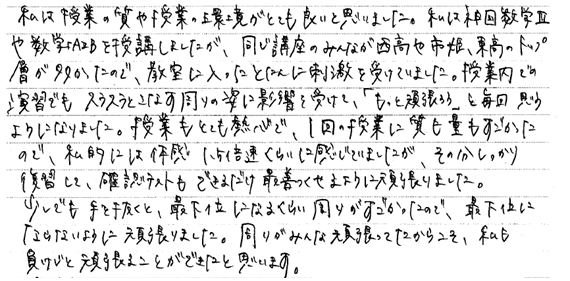 私は授業の質や授業の環境がとても良いと思いました。私は神田数学Ⅲ
や数学ⅠAⅡBを授講しましたが、同じ講座のみんなが西高や市姫、東高のトップ
層が多かったので、教室に入ったとたんに刺激を受けていました。授業内での
演習でもスラスラとこなす周りの姿に影響を受けて、「もっと頑張ろう」と毎回思う
ようになりました。授業もとても熱心で、1回の授業に質も量もすごかった
ので、私的には体感1.5倍速くらいに感じていましたが、その分しっかり
復習して、確認テストもできるだけ最善つくせるように頑張りました。
少しでも手を抜くと、最下位になるくらい周りがすごかったので、最下位に
ならないように頑張りました。周りがみんな頑張ってたからこそ、私も
負けじと頑張ることができたと思います。